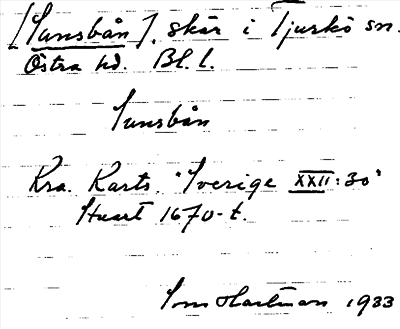 [Sunsbån], skär i Tjurkö sn.
Östra hd. Bl. l.
Sunsbån
Kra. Kart. "Sverige XXII:30"
1670-t.
Hartman 1933